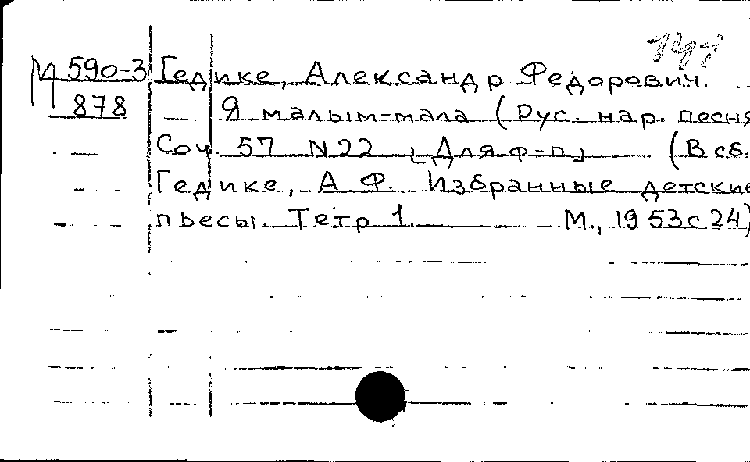 М 590-3 Гедике, Александр Федорович.
878 Я малым-мала (Рус. нар. песня
Соч. 57 N22 [Для ф-п] (В сб.
Гедике, А Ф. Избранные детские
пьесы. Тетр 1 М., 1953 с 24)